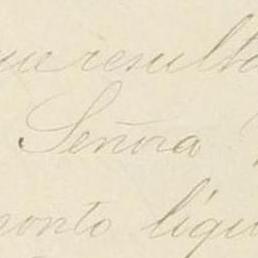 que resulta
Señora
pronto liqui